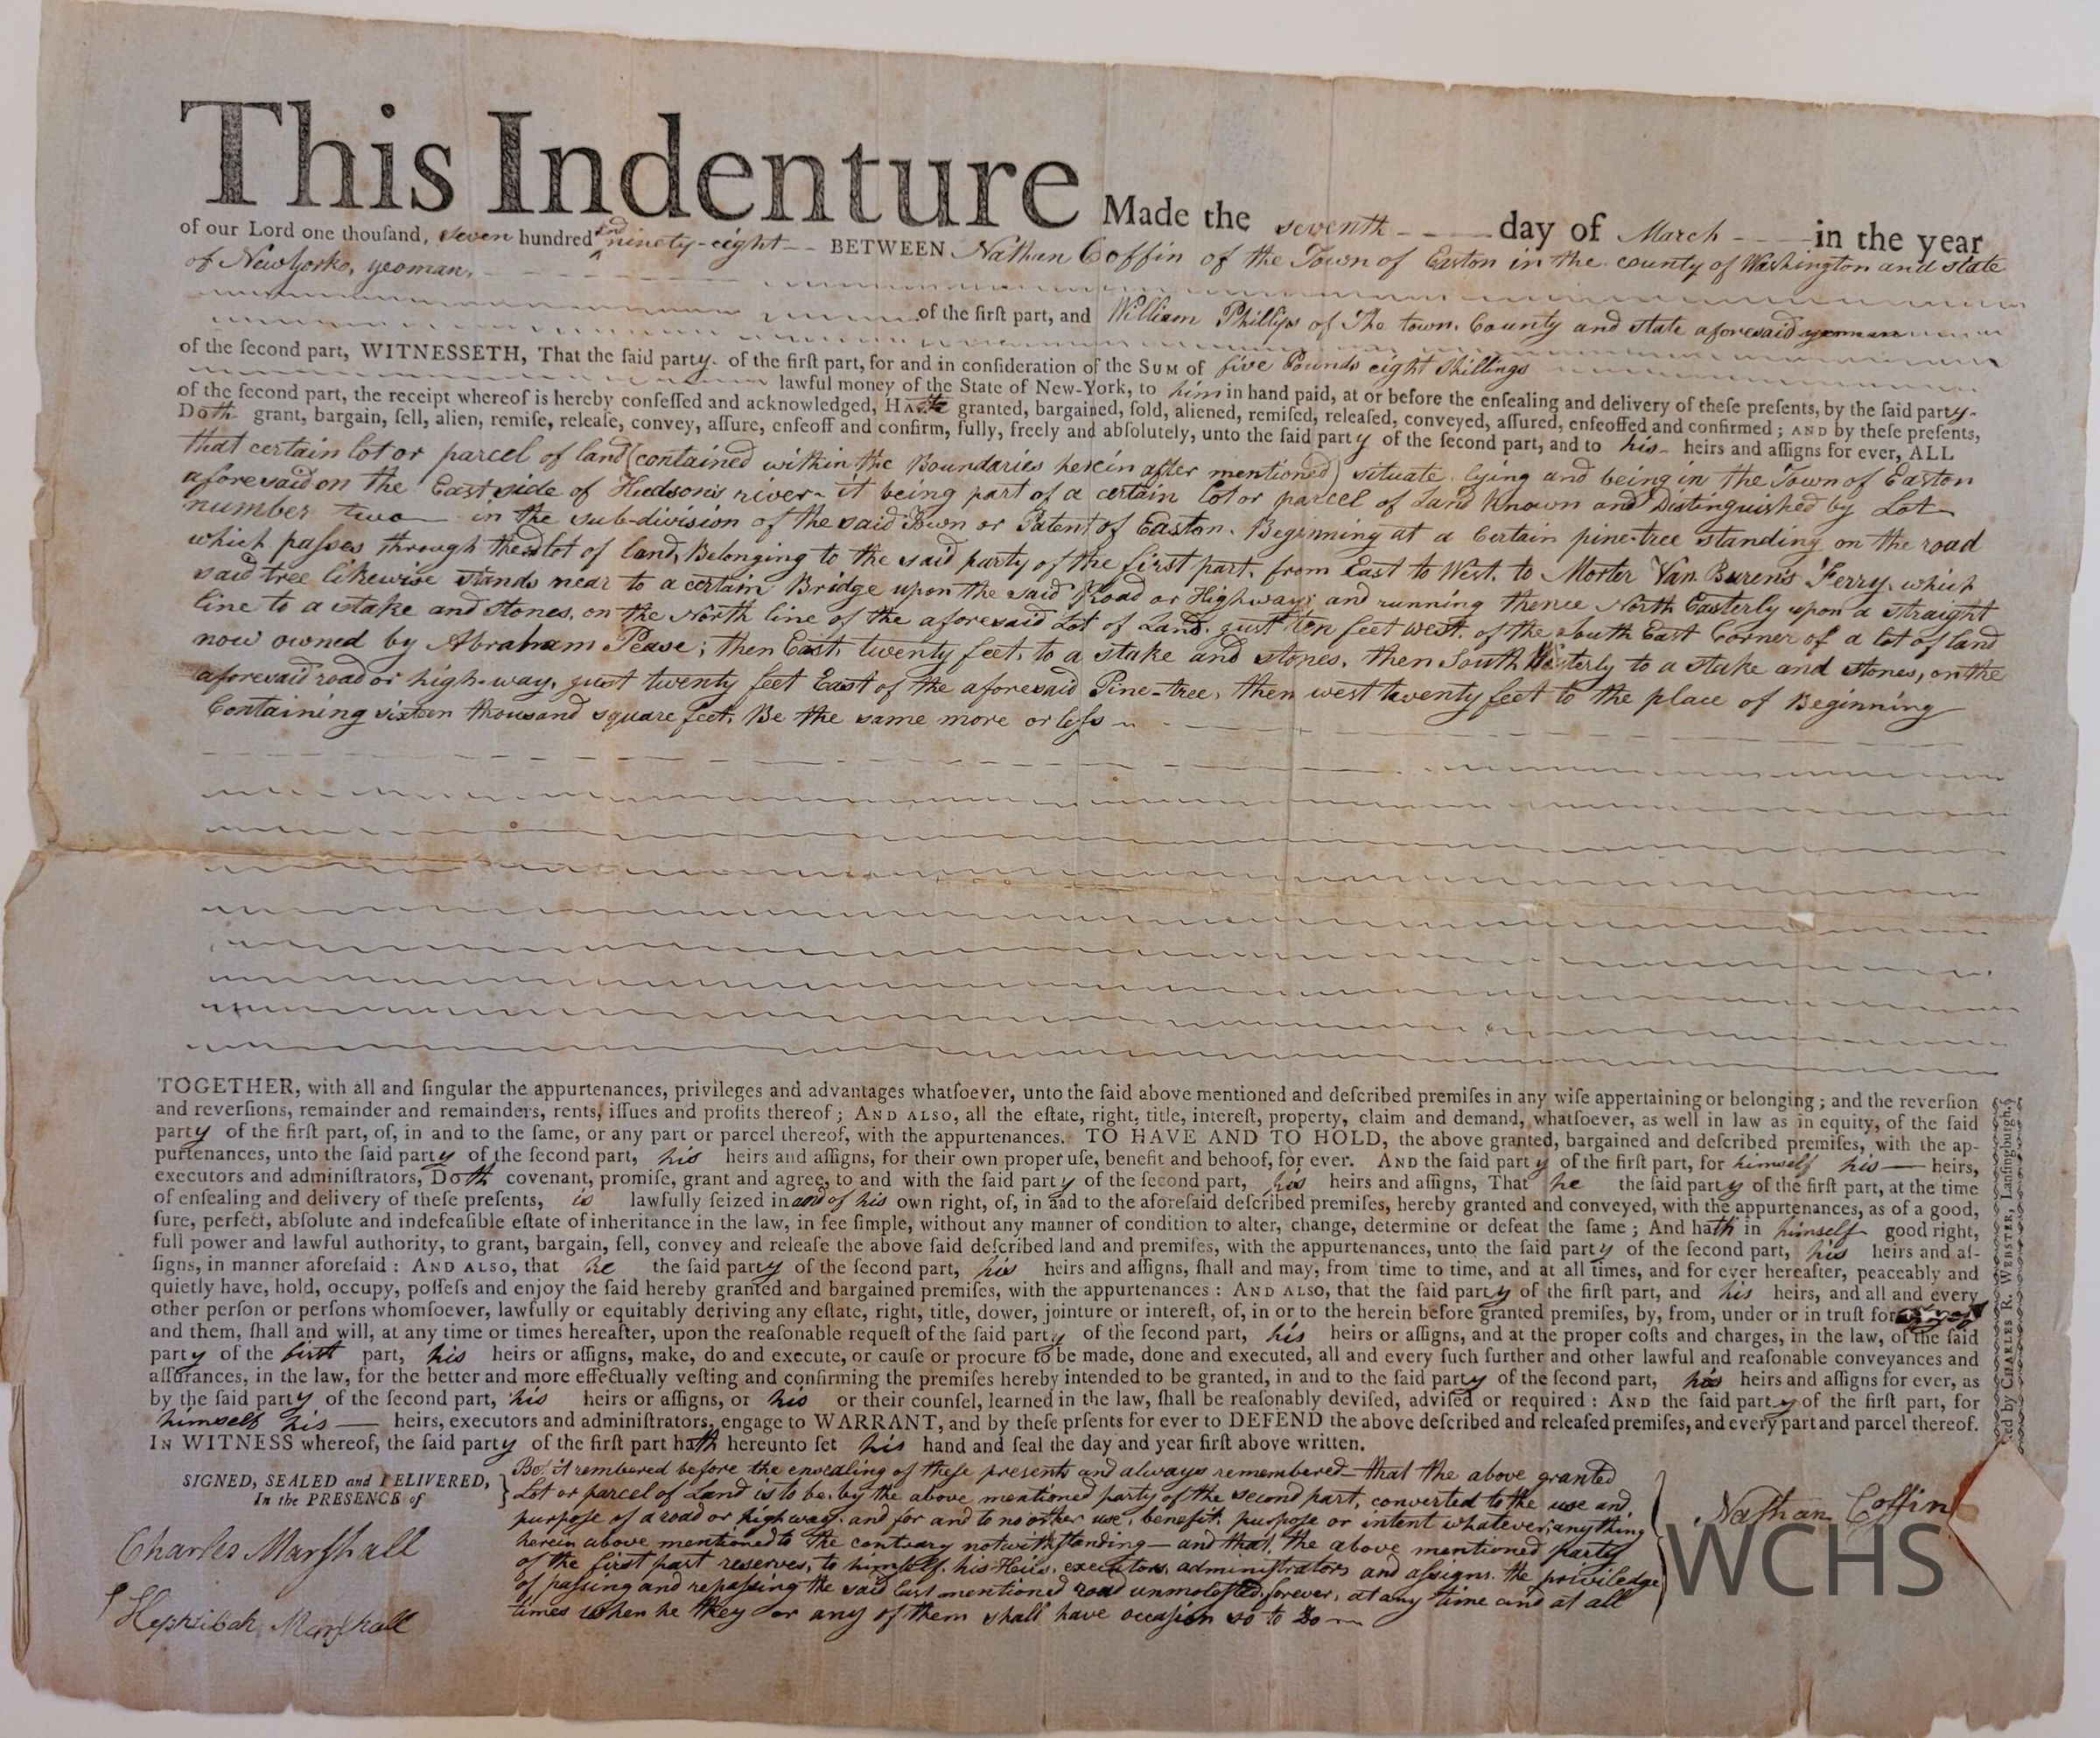 This Indenture Made the seventh day of March in the year
of our Lord one thouſand, seven hundred and ninety-eight BETWEEN Nathan Coffin of the Town of Easton in the county of Washington and state
of New York, yeoman,
of the firſt part, and William Phillips of The town, County and state aforesaid yeoman
of the ſecond part, WITNESSETH, That the ſaid party of the firſt part, for and in conſideration of the SUM of five Pounds eight Shillings
lawful money of the State of New-York, to him in hand paid, at or before the enſealing and delivery of theſe preſents, by the ſaid party
of the ſecond part, the receipt whereof is hereby confeſſed and acknowledged, Hath granted, bargained, ſold, aliened, remiſed, releaſed, conveyed, aſſured, enfeoffed and confirmed; AND by theſe preſents,
Doth grant, bargain, ſell, alien, remiſe, releaſe, convey, aſſure, enfeoff and confirm, fully, freely and abſolutely, unto the ſaid party of the ſecond part, and to his heirs and aſſigns for ever, ALL
that certain lot or parcel of land (contained within the Boundaries herein after mentioned) situate, lying and being in the Town of Easton
aforesaid on the East side of Hudson's river - it being part of a certain Lot or parcel of Land known and Distinguished by Lot
number two in the sub-division of the said Town or Patent of Easton. Beginning at a Certain pine-tree standing on the road
which paſses through the lot of land, Belonging to the said party of the first part, from East to West, to Morter Van Buren's Ferry, which
said tree likewise stands near to a certain Bridge upon the said Road or Highway; and running thence North Easterly upon a straight
line to a stake and stones, on the North line of the aforesaid Lot of Land, just ten feet west, of the South East Corner of a lot of land
now owned by Abraham Pease; then East, twenty feet, to a stake and stones, then South Westerly to a stake and stones, on the
aforesaid road or high-way, just twenty feet East of the aforesaid Pine-tree, then west twenty feet to the place of Beginning
Containing sixteen thousand square feet, Be the same more or leſs
TOGETHER, with all and ſingular the appurtenances, privileges and advantages whatſoever, unto the ſaid above mentioned and deſcribed premiſes in any wiſe appertaining or belonging; and the reverſion
and reverſions, remainder and remainders, rents, iſſues and profits thereof; AND ALSO, all the eſtate, right, title, intereſt, property, claim and demand, whatſoever, as well in law as in equity, of the ſaid
party of the firſt part, of, in and to the ſame, or any part or parcel thereof, with the appurtenances. TO HAVE AND TO HOLD, the above granted, bargained and deſcribed premiſes, with the ap-
purtenances, unto the ſaid party of the ſecond part, his heirs and aſſigns, for their own proper uſe, benefit and behoof, for ever. AND the ſaid party of the firſt part, for himself his heirs,
executors and adminiſtrators, Doth covenant, promiſe, grant and agree, to and with the ſaid party of the ſecond part, his heirs and aſſigns, That he the ſaid party of the firſt part, at the time
of enſealing and delivery of theſe preſents, is lawfully ſeized in and of his own right, of, in and to the aforeſaid deſcribed premiſes, hereby granted and conveyed, with the appurtenances, as of a good,
ſure, perfect, abſolute and indefeaſible eſtate of inheritance in the law, in fee ſimple, without any manner of condition to alter, change, determine or defeat the ſame; And hath in himself good right,
full power and lawful authority, to grant, bargain, ſell, convey and releaſe the above ſaid deſcribed land and premiſes, with the appurtenances, unto the ſaid party of the ſecond part, his heirs and aſ-
ſigns, in manner aforeſaid: AND ALSO, that he the ſaid party of the ſecond part, his heirs and aſſigns, ſhall and may, from time to time, and at all times, and for ever hereafter, peaceably and
quietly have, hold, occupy, poſſeſs and enjoy the ſaid hereby granted and bargained premiſes, with the appurtenances: AND ALSO, that the ſaid party of the firſt part, and his heirs, and all and every
other perſon or perſons whomſoever, lawfully or equitably deriving any eſtate, right, title, dower, jointure or intereſt, of, in or to the herein before granted premiſes, by, from, under or in truſt for
and them, ſhall and will, at any time or times hereafter, upon the reaſonable requeſt of the ſaid party of the ſecond part, his heirs or aſſigns, and at the proper coſts and charges, in the law, of the ſaid
party of the first part, his heirs or aſſigns, make, do and execute, or cauſe or procure to be made, done and executed, all and every ſuch further and other lawful and reaſonable conveyances and
aſſurances, in the law, for the better and more effectually veſting and confirming the premiſes hereby intended to be granted, in and to the ſaid party of the ſecond part, his heirs and aſſigns for ever, as
by the ſaid party of the ſecond part, his heirs or aſſigns, or his or their counſel, learned in the law, ſhall be reaſonably deviſed, adviſed or required: AND the ſaid party of the firſt part, for
himself his heirs, executors and adminiſtrators, engage to WARRANT, and by theſe prſents for ever to DEFEND the above deſcribed and releaſed premiſes, and every part and parcel thereof.
IN WITNESS whereof, the ſaid party of the firſt part hath hereunto ſet his hand and ſeal the day and year firſt above written.
SIGNED, SEALED and DELIVERED,
In the PRESENCE of
Charles Marſhall
Hepzibah Marſhall
Be it rembered before the ensealing of these presents and always remembered - that the above granted
Lot or parcel of Land is to be, by the above mentioned party of the second part, converted to the use and
purpose of a road or highway, and for and to no other use, benefit, purpose or intent whatever, anything
herein above mentioned to the contrary notwithstanding - and that, the above mentioned party
of the first part reserves, to himself, his Heirs, executors, administrators and aſsigns, the priviledge
of paſsing and repaſsing the said last mentioned road unmolested, forever, at any time and at all
times when he they or any of them shall have occaſion so to Do
Nathan Coffin
by CHARLES R. WEBSTER, Lanſingburgh.
WCHS